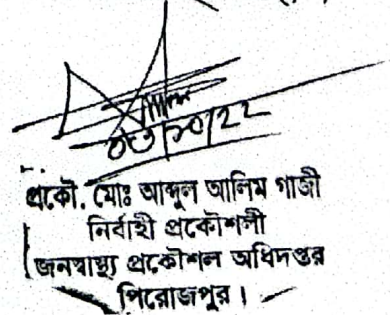 ০৩/১০/২২
প্রকৌ. মোঃ আব্দুল আলিম গাজী
নির্বাহী প্রকৌশলী
জনস্বাস্থ্য প্রকৌশল অধিদপ্তর
পিরোজপুর।